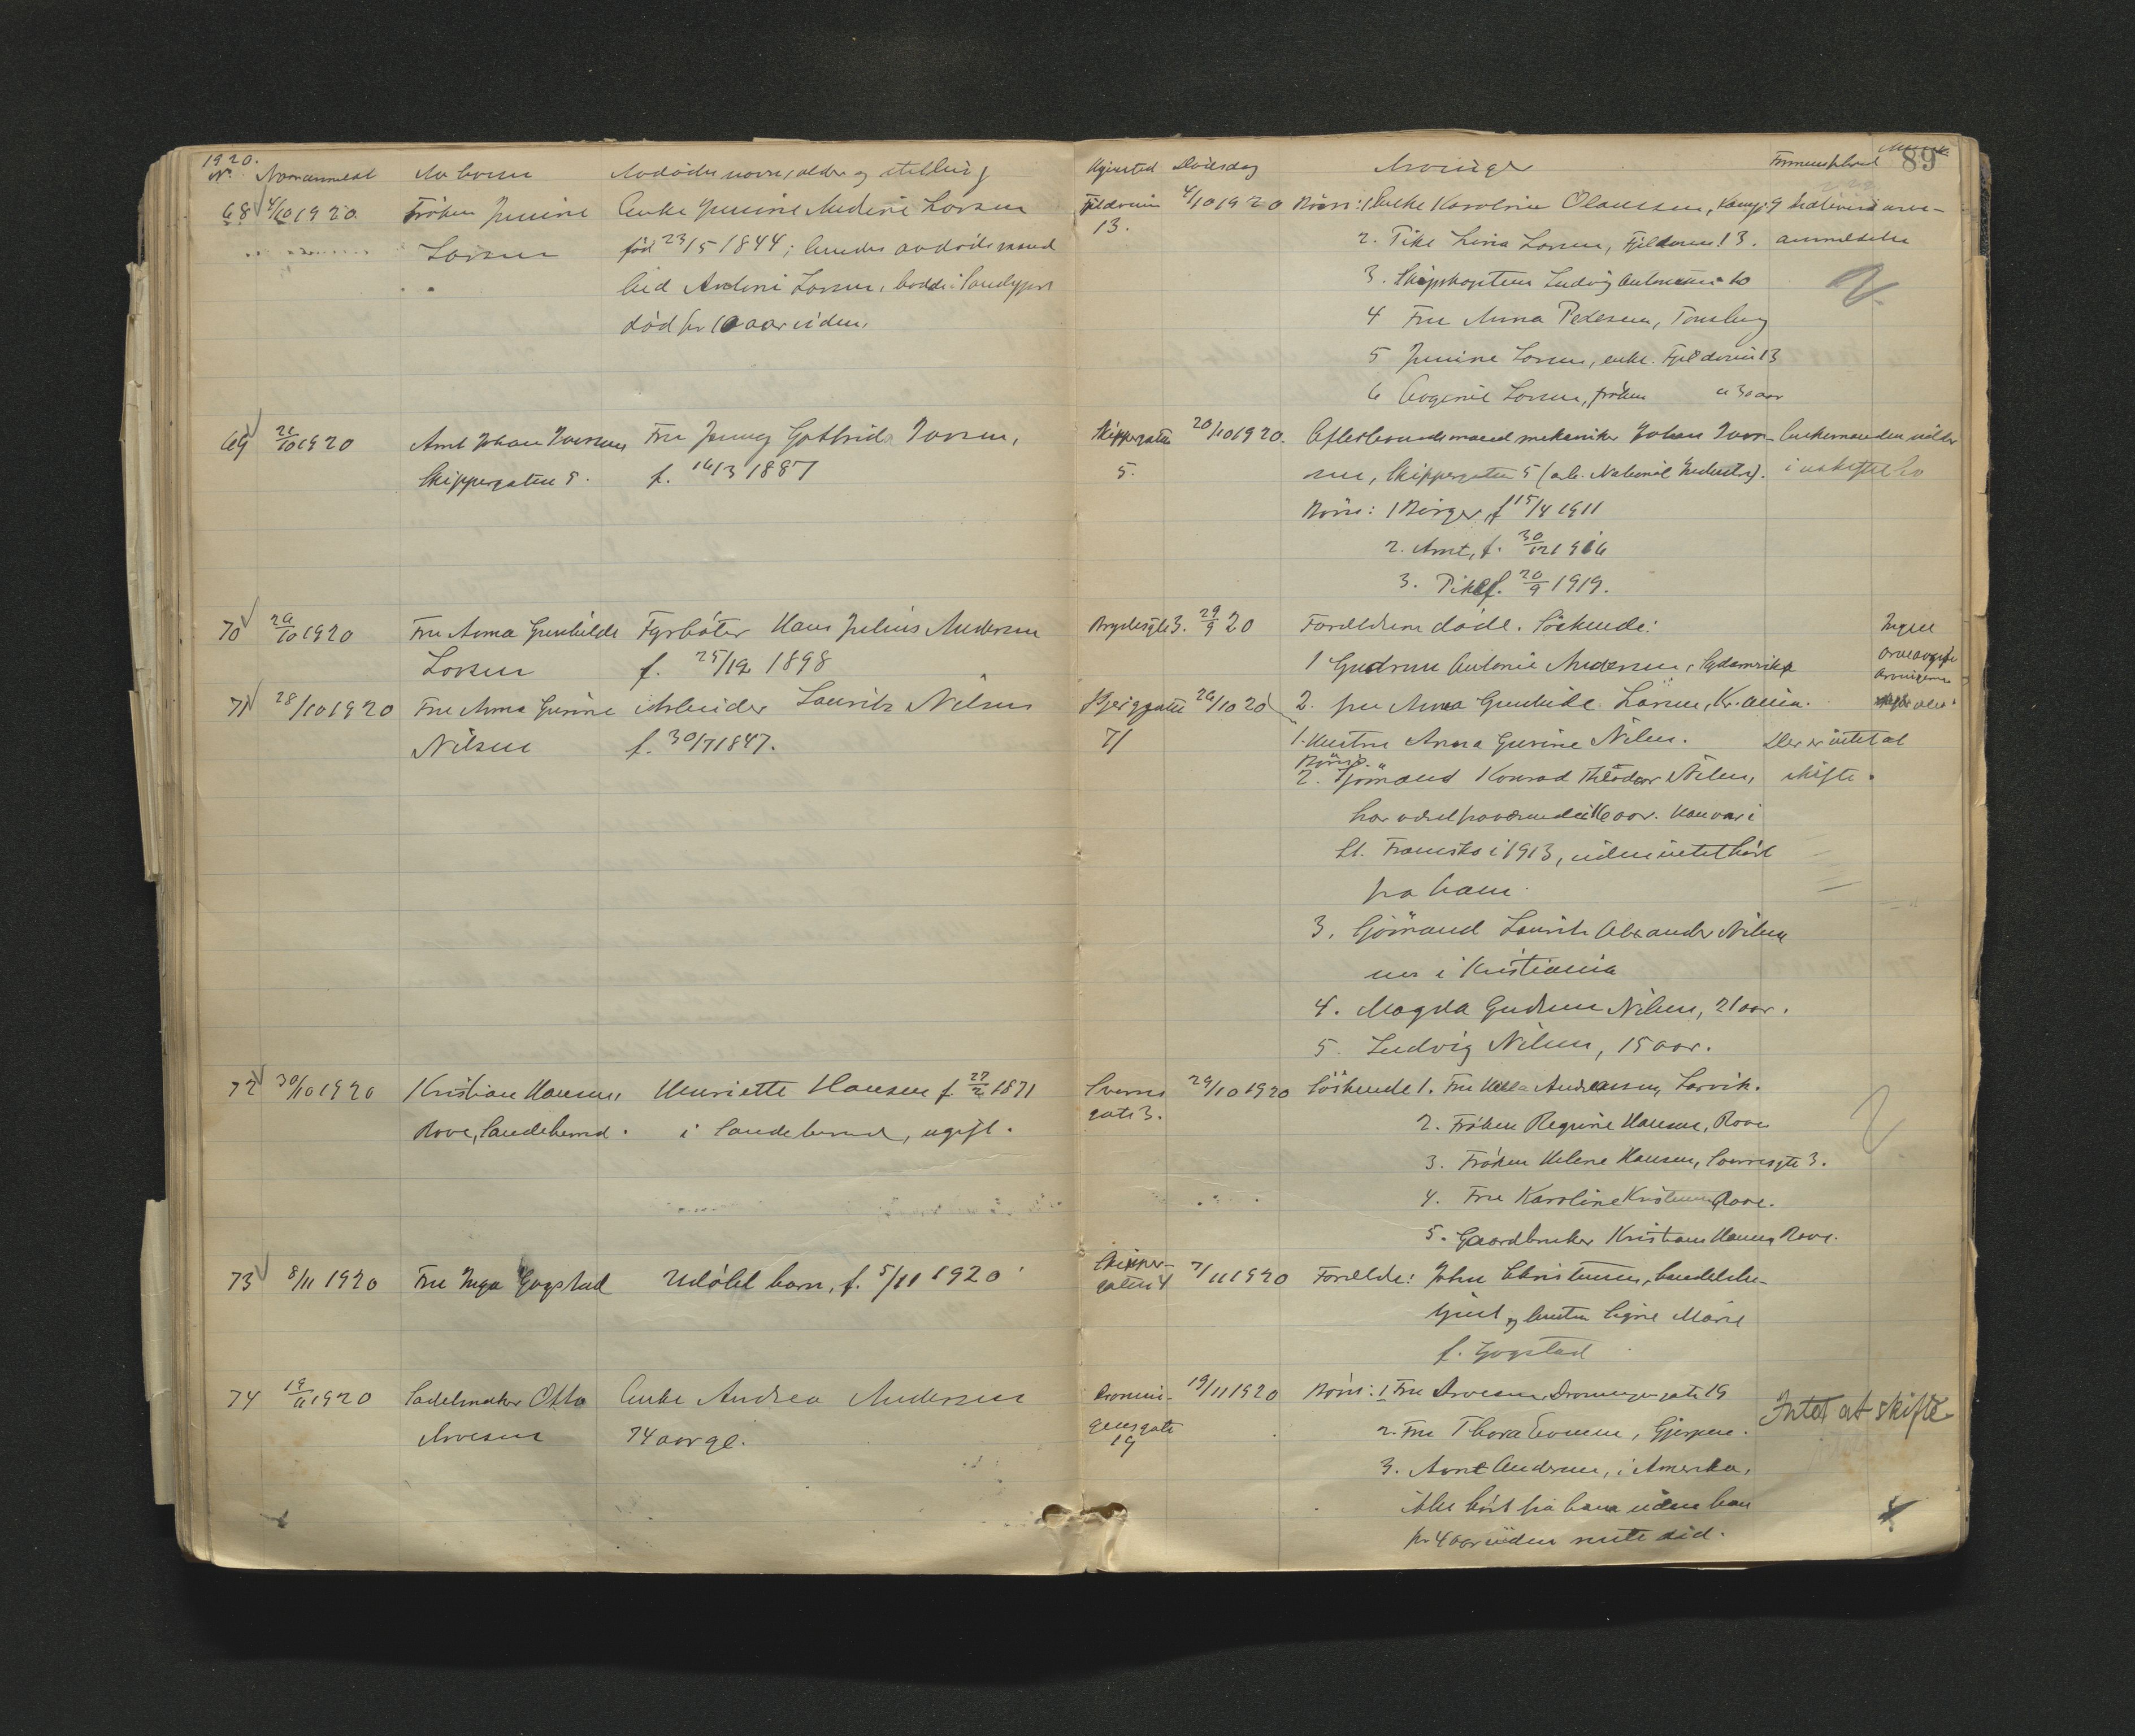 1920.
No. Naar anmeldt Av hvem Avdødes navn, alder og stilling
68 4/10 1920 Frøken Jensine Enke Jensine Andrine Larsen
Larsen født 23/5 1844; hendes avdøde mand
hed Antoni Larsen, bodde i Sandefjord
død for 10 aar siden.
69 21/10 1920 Arnt Johan Iversen Fru Jenny Gothrid Iversen,
Skippergaten 5. f. 16/3 1887
70 26/10 1920 Fru Anna Gunhilde Fyrbøter Hans Julius Andersen
Larsen f. 25/12 1898
71 28/10 1920 Fru Anna Gurine Arbeider Lauritz Nilsen
Nilsen f. 30/7 1847.
72 30/10 1920 Kristian Hansen, Henriette Hansen f. 27/2 1871
Rove, Sandeherred. i Sandeherred, ugift.
73 8/11 1920 Fru Inga Gogstad Udøbt barn, f. 5/11 1920
74 19/11 1920 Sadelmaker Otto Enke Andrea Andersen
Arvesen 74 aar gl.
89
Dødsdag Arvinger Formuesforhold
Fjeldveien 4/10 1920 Børn: 1 Enke Karoline Olaussen,
13. 2. Pike Lina Larsen, Fjeldveien 13. anmeldelse
3. Skipskaptein Ludvig
4 Fru Anna Pedersen, Tønsberg
5 Jensine Larsen, enke. Fjeldveien 13
6 Larsen, frøken 30 aar
Skippergaten 20/10 1920. Efterlevende mand mekaniker Johan Iver- Enkemanden sidder
5. sen, Skippergaten 5 (arb. National Industri). i uskiftet bo
Børn: 1 Birger, f 15/4 1911
2. Arnt, f. 30/12 1916
3. Pike f. 20/9 1919.
3. 29/9 20 Forældrene døde. Søskende: Ingen
1 Gudrun Antonie Andersen, Sydamerika arveavgift
2. fru Anna Gunhilde Larsen, Kr.ania. Arvingerne
Bjerggaten 26/10 20
71 1. Hustru Anna Gurine Nilsen. Der er intet at
Børn:
2. Sjømand Konrad Theodor Nilsen, skifte.
har været fraværende i 16 aar. Han var i
St. Fransisko i 1913, siden intet hørt
fra ham.
3. Sjømand Lauritz Alexander Nilsen
nu i Kristiania
4. Magda Gudrun Nilsen, 21 aar.
5. Ludvig Nilsen, 15 aar.
Sverres 29/10 1920 Søskende 1. Fru Andreassen, Larvik.
gate 3. 2. Frøken Regine Hansen, Rove
3. Frøken Helene Hansen, Sverresgt 3.
4. Fru Karoline Kristensen Rove.
5. Gaardbruker Kristian Hansen Rove.
Skipper-
gaten 4 7/11 1920 Forældre: John Christensen,
og hustru Signe Marie
f. Gogstad
Dronnin- 19/11 1920 Børn: 1 Fru Arvesen Dronningensgate 19
gensgate 2. Fru Thora Evensen, Gjerpen. Intet at skifte
19
3. Arnt Andersen, i Amerika,
ikke hørt fra ham siden han
for 4 aar siden reiste did.